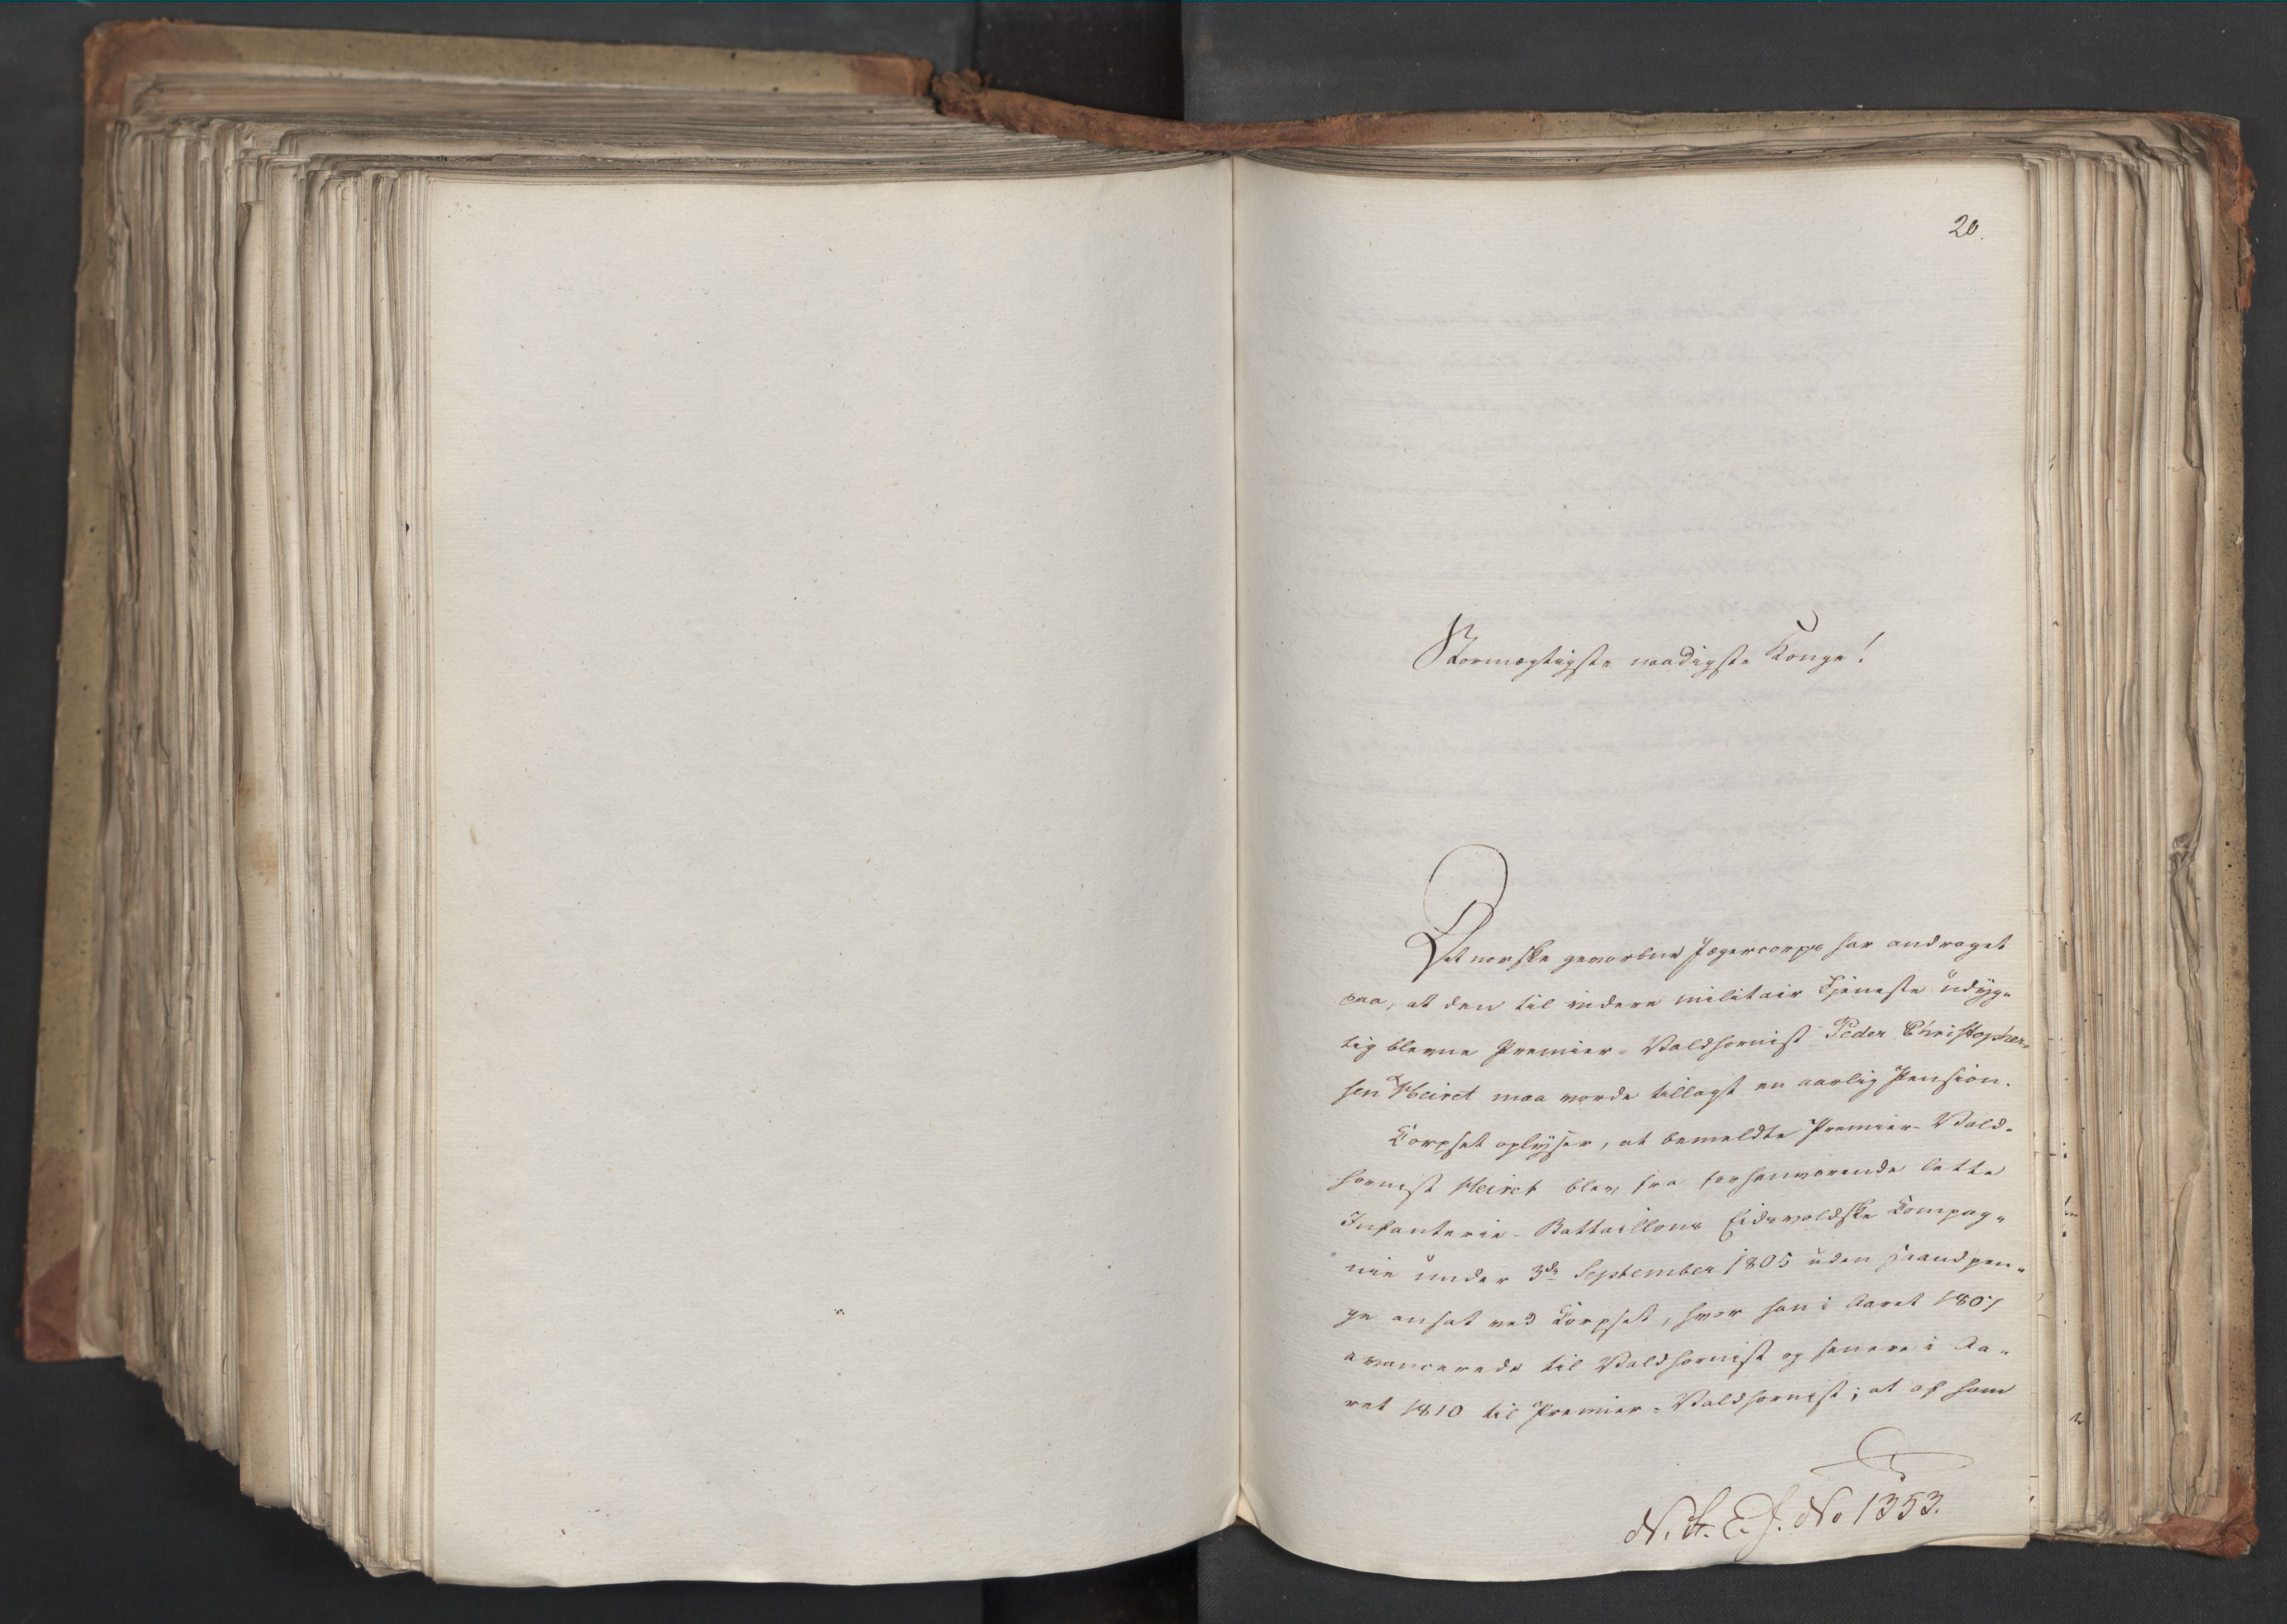 20.
Stormægtigste naadigste Konge!
Det norske gevorbne Jægercorps har andraget
paa, at den til videre militair Tjeneste udyg„
tig blevne Premier-Valdhornist Peder Christopher„
sen Heiret maa vorde tillagt en aarlig Pension.
Corpset oplyser, at bemeldte Premier-Vald-
hornist Heiret blev fra forhenværende lette
Infanterie-Battaillons Eidsvoldske Compag„
nie under 3de September 1805 uden Haandpen„
ge ansat ved Corpset, hvor han i Aaret 1807
avancerede til Valdhornist og senere i Aa„
ret 1810 til Premier-Valdhornist; at af ham
N. St. E. J. No 1353.